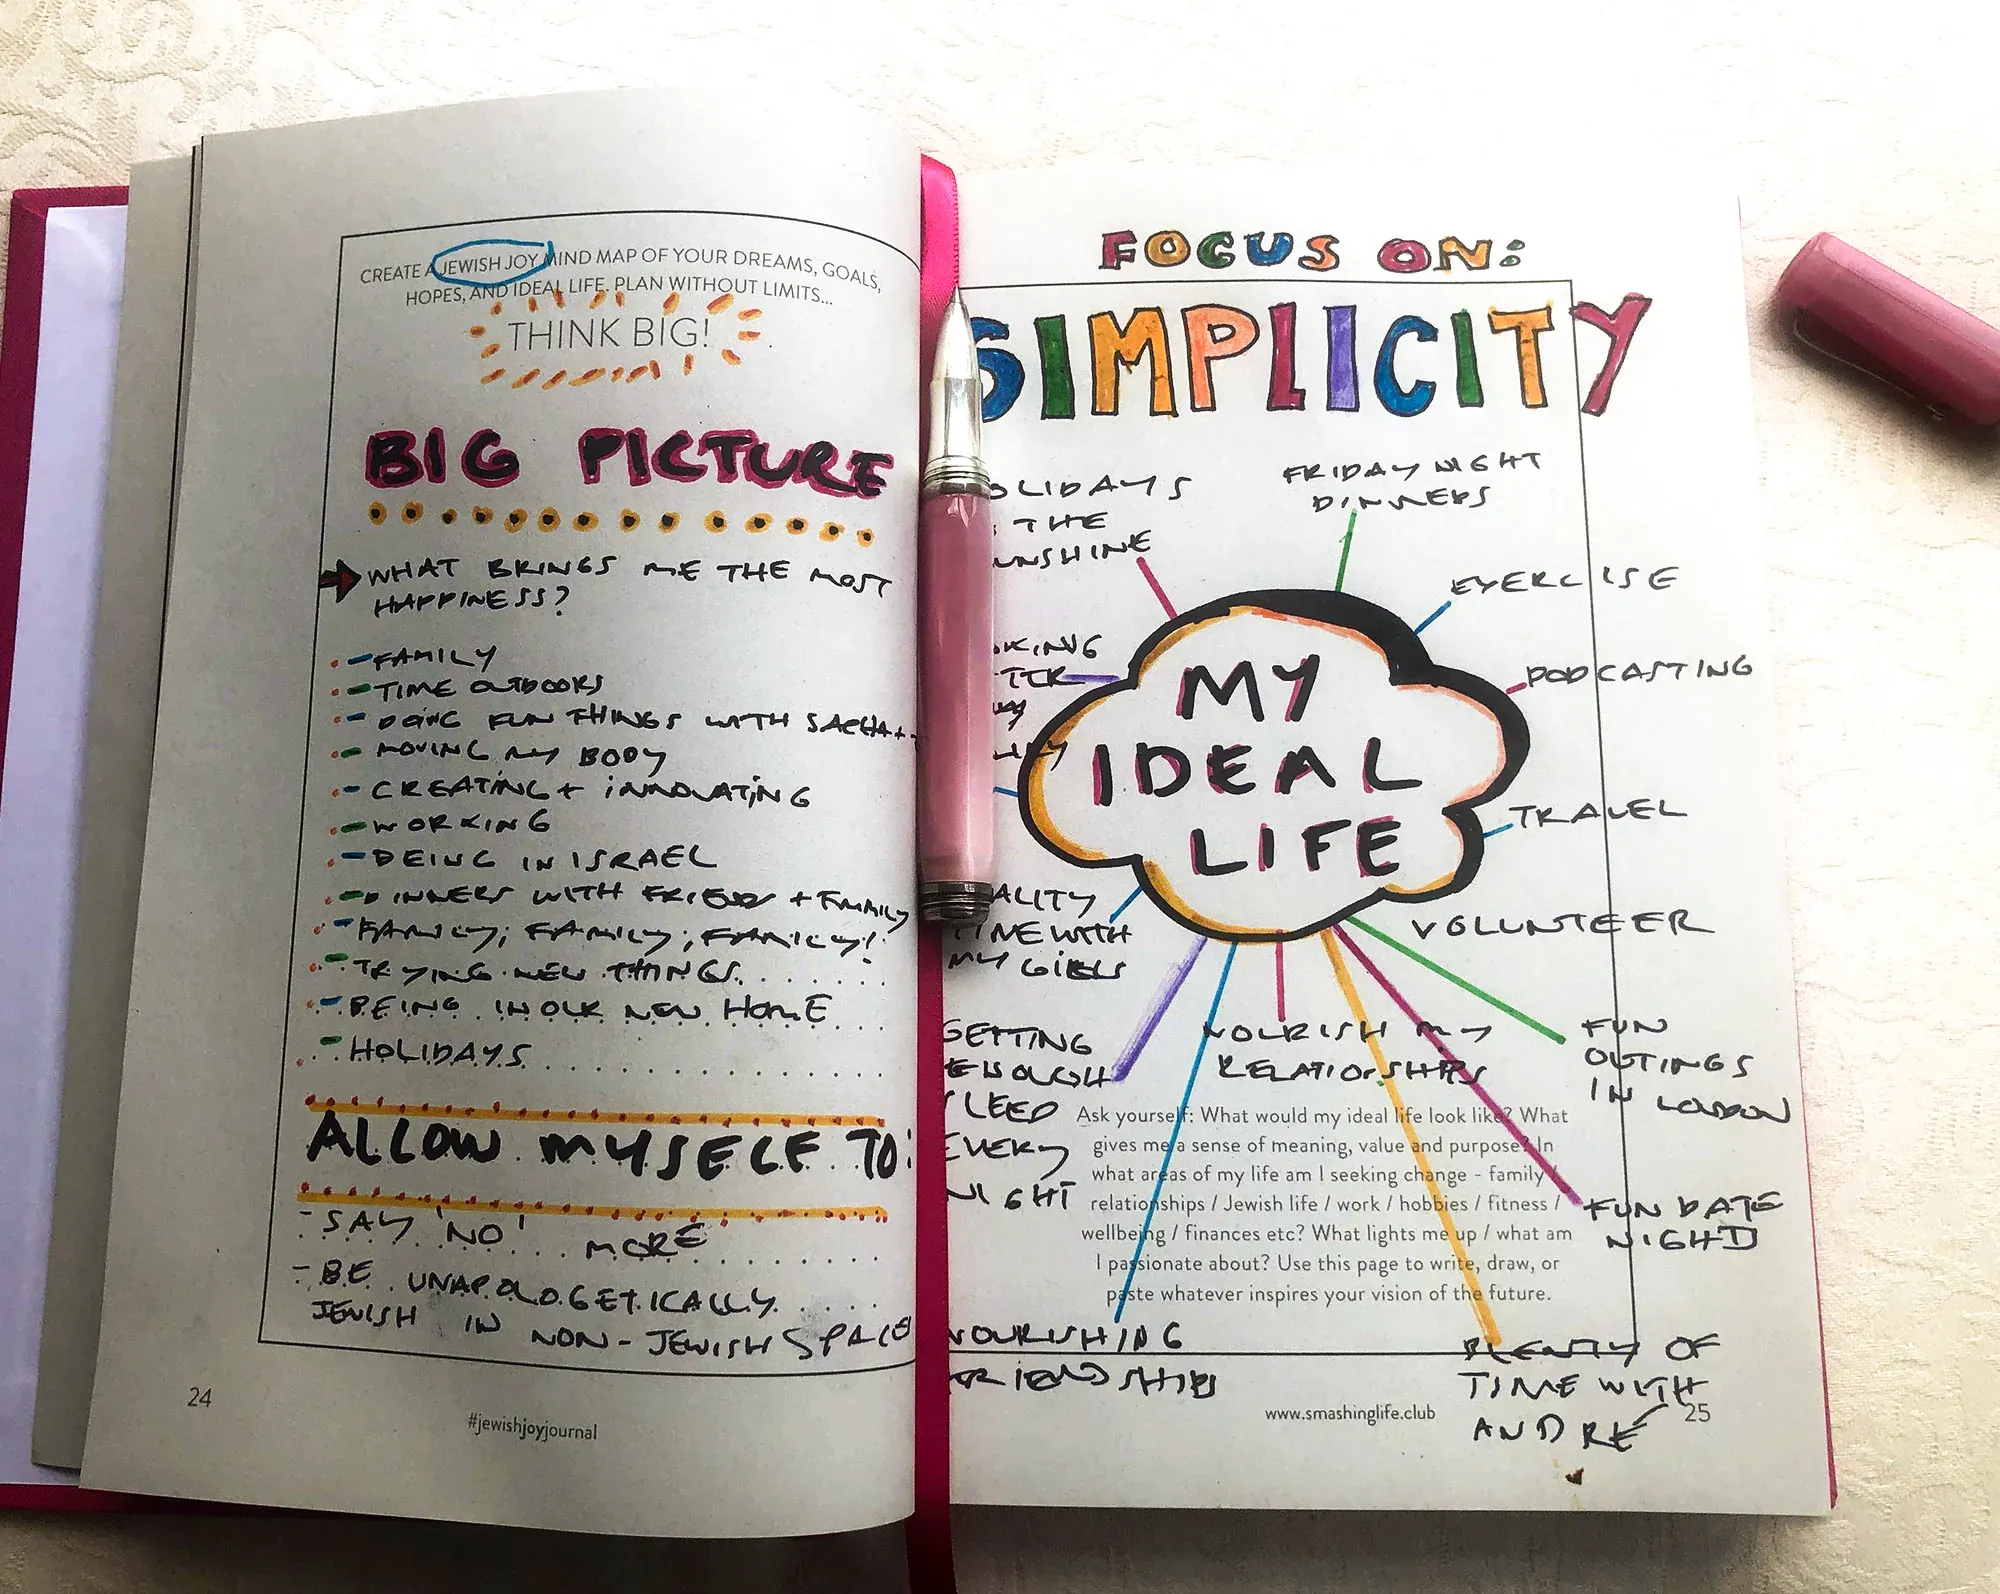 CREATE A JEWISH JOY MIND MAP OF YOUR DREAMS, GOALS,
HOPES, AND IDEAL LIFE. PLAN WITHOUT LIMITS...
THINK BIG!
BIG PICTURE
WHAT BRINGS ME THE MOST
HAPPINESS?
- FAMILY
- TIME OUTDOORS
- DOING FUN THINGS WITH SACHA +
- MOVING MY BODY
- CREATING + INNOVATING
- WORKING
- BEING IN ISRAEL
- DINNERS WITH FRIENDS + FAMILY
- FAMILY, FAMILY, FAMILY!
- TRYING NEW THINGS
- BEING IN OUR NEW HOME
- HOLIDAYS
ALLOW MYSELF TO:
- SAY 'NO' MORE
- BE UNAPOLOGETICALLY
JEWISH IN NON-JEWISH SPACE
24
#jewishjoyjournal
FOCUS ON:
SIMPLICITY
OLIDAYS
THE
UNSHINE
FRIDAY NIGHT
DINNERS
EXERCISE
PODCASTING
TRAVEL
VOLUNTEER
MY
IDEAL
LIFE
KING
ALITY
TIME WITH
MY GIRLS
GETTING
ENOUGH
SLEEP
EVERY
NIGHT
NOURISH MY
RELATIONSHIPS
FUN
OUTINGS
IN LONDON
FUN DATE
NIGHTS
Ask yourself: What would my ideal life look like? What
gives me a sense of meaning, value and purpose? In
what areas of my life am I seeking change - family /
relationships / Jewish life / work / hobbies / fitness /
wellbeing / finances etc? What lights me up / what am
I passionate about? Use this page to write, draw, or
paste whatever inspires your vision of the future.
NOURISHING
FRIENDSHIPS
PLENTY OF
TIME WITH
ANDRE
www.smashinglife.club
25